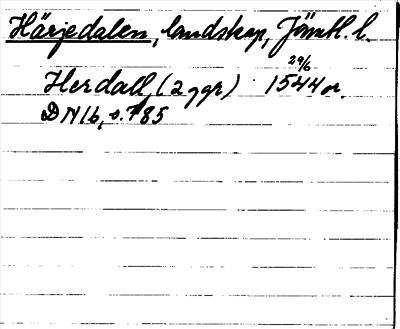 Härjedalen, landskap, Jämtl. l.
Herdall, (2 ggr) 29/6 1544 or.
DN 16, s. 785